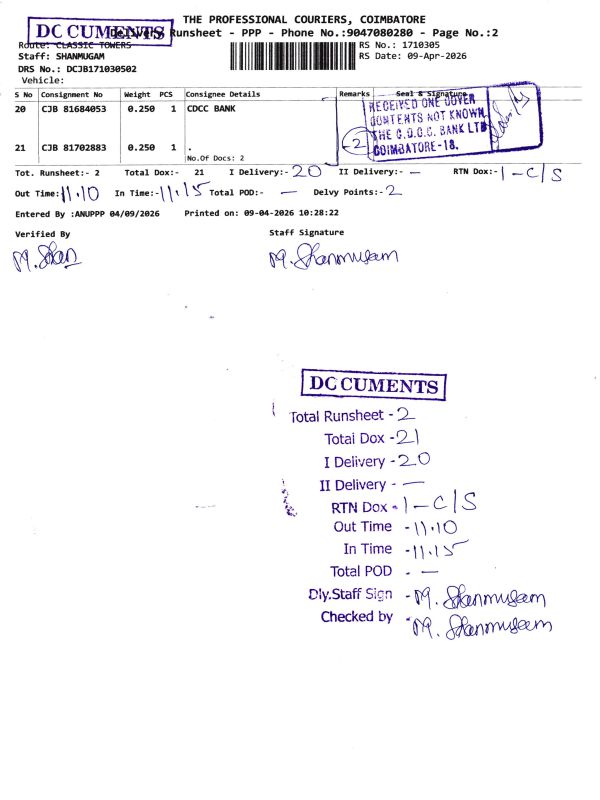 THE PROFESSIONAL COURIERS, COIMBATORE
DOCUMENTS
Delivery Runsheet - PPP - Phone No.:9047080280 - Page No.:2
Route: CLASSIC TOWERS
RS No.: 1710305
Staff: SHANMUGAM
RS Date: 09-Apr-2026
DRS No.: DCJB171030502
Vehicle:
S No Consignment No Weight PCS Consignee Details Remarks Seal & Signature
20 CJB 81684053 0.250 1 CDCC BANK
RECEIVED ONE COVER
CONTENTS NOT KNOWN
THE C.D.C.C. BANK LTD
COIMBATORE-18.
-2
21 CJB 81702883 0.250 1 .
No.Of Docs: 2
Tot. Runsheet:- 2 Total Dox:- 21 I Delivery:- 20 II Delivery:- — RTN Dox:- 1 - C/S
Out Time: 11.10 In Time:- 11.15 Total POD:- — Delvy Points:- 2
Entered By :ANUPPP 04/09/2026 Printed on: 09-04-2026 10:28:22
Verified By Staff Signature
M. Shanmugam
DOCUMENTS
Total Runsheet - 2
Total Dox - 21
I Delivery - 20
II Delivery - —
RTN Dox - 1 - C/S
Out Time - 11.10
In Time - 11.15
Total POD - —
Dly.Staff Sign - M. Shanmugam
Checked by - M. Shanmugam